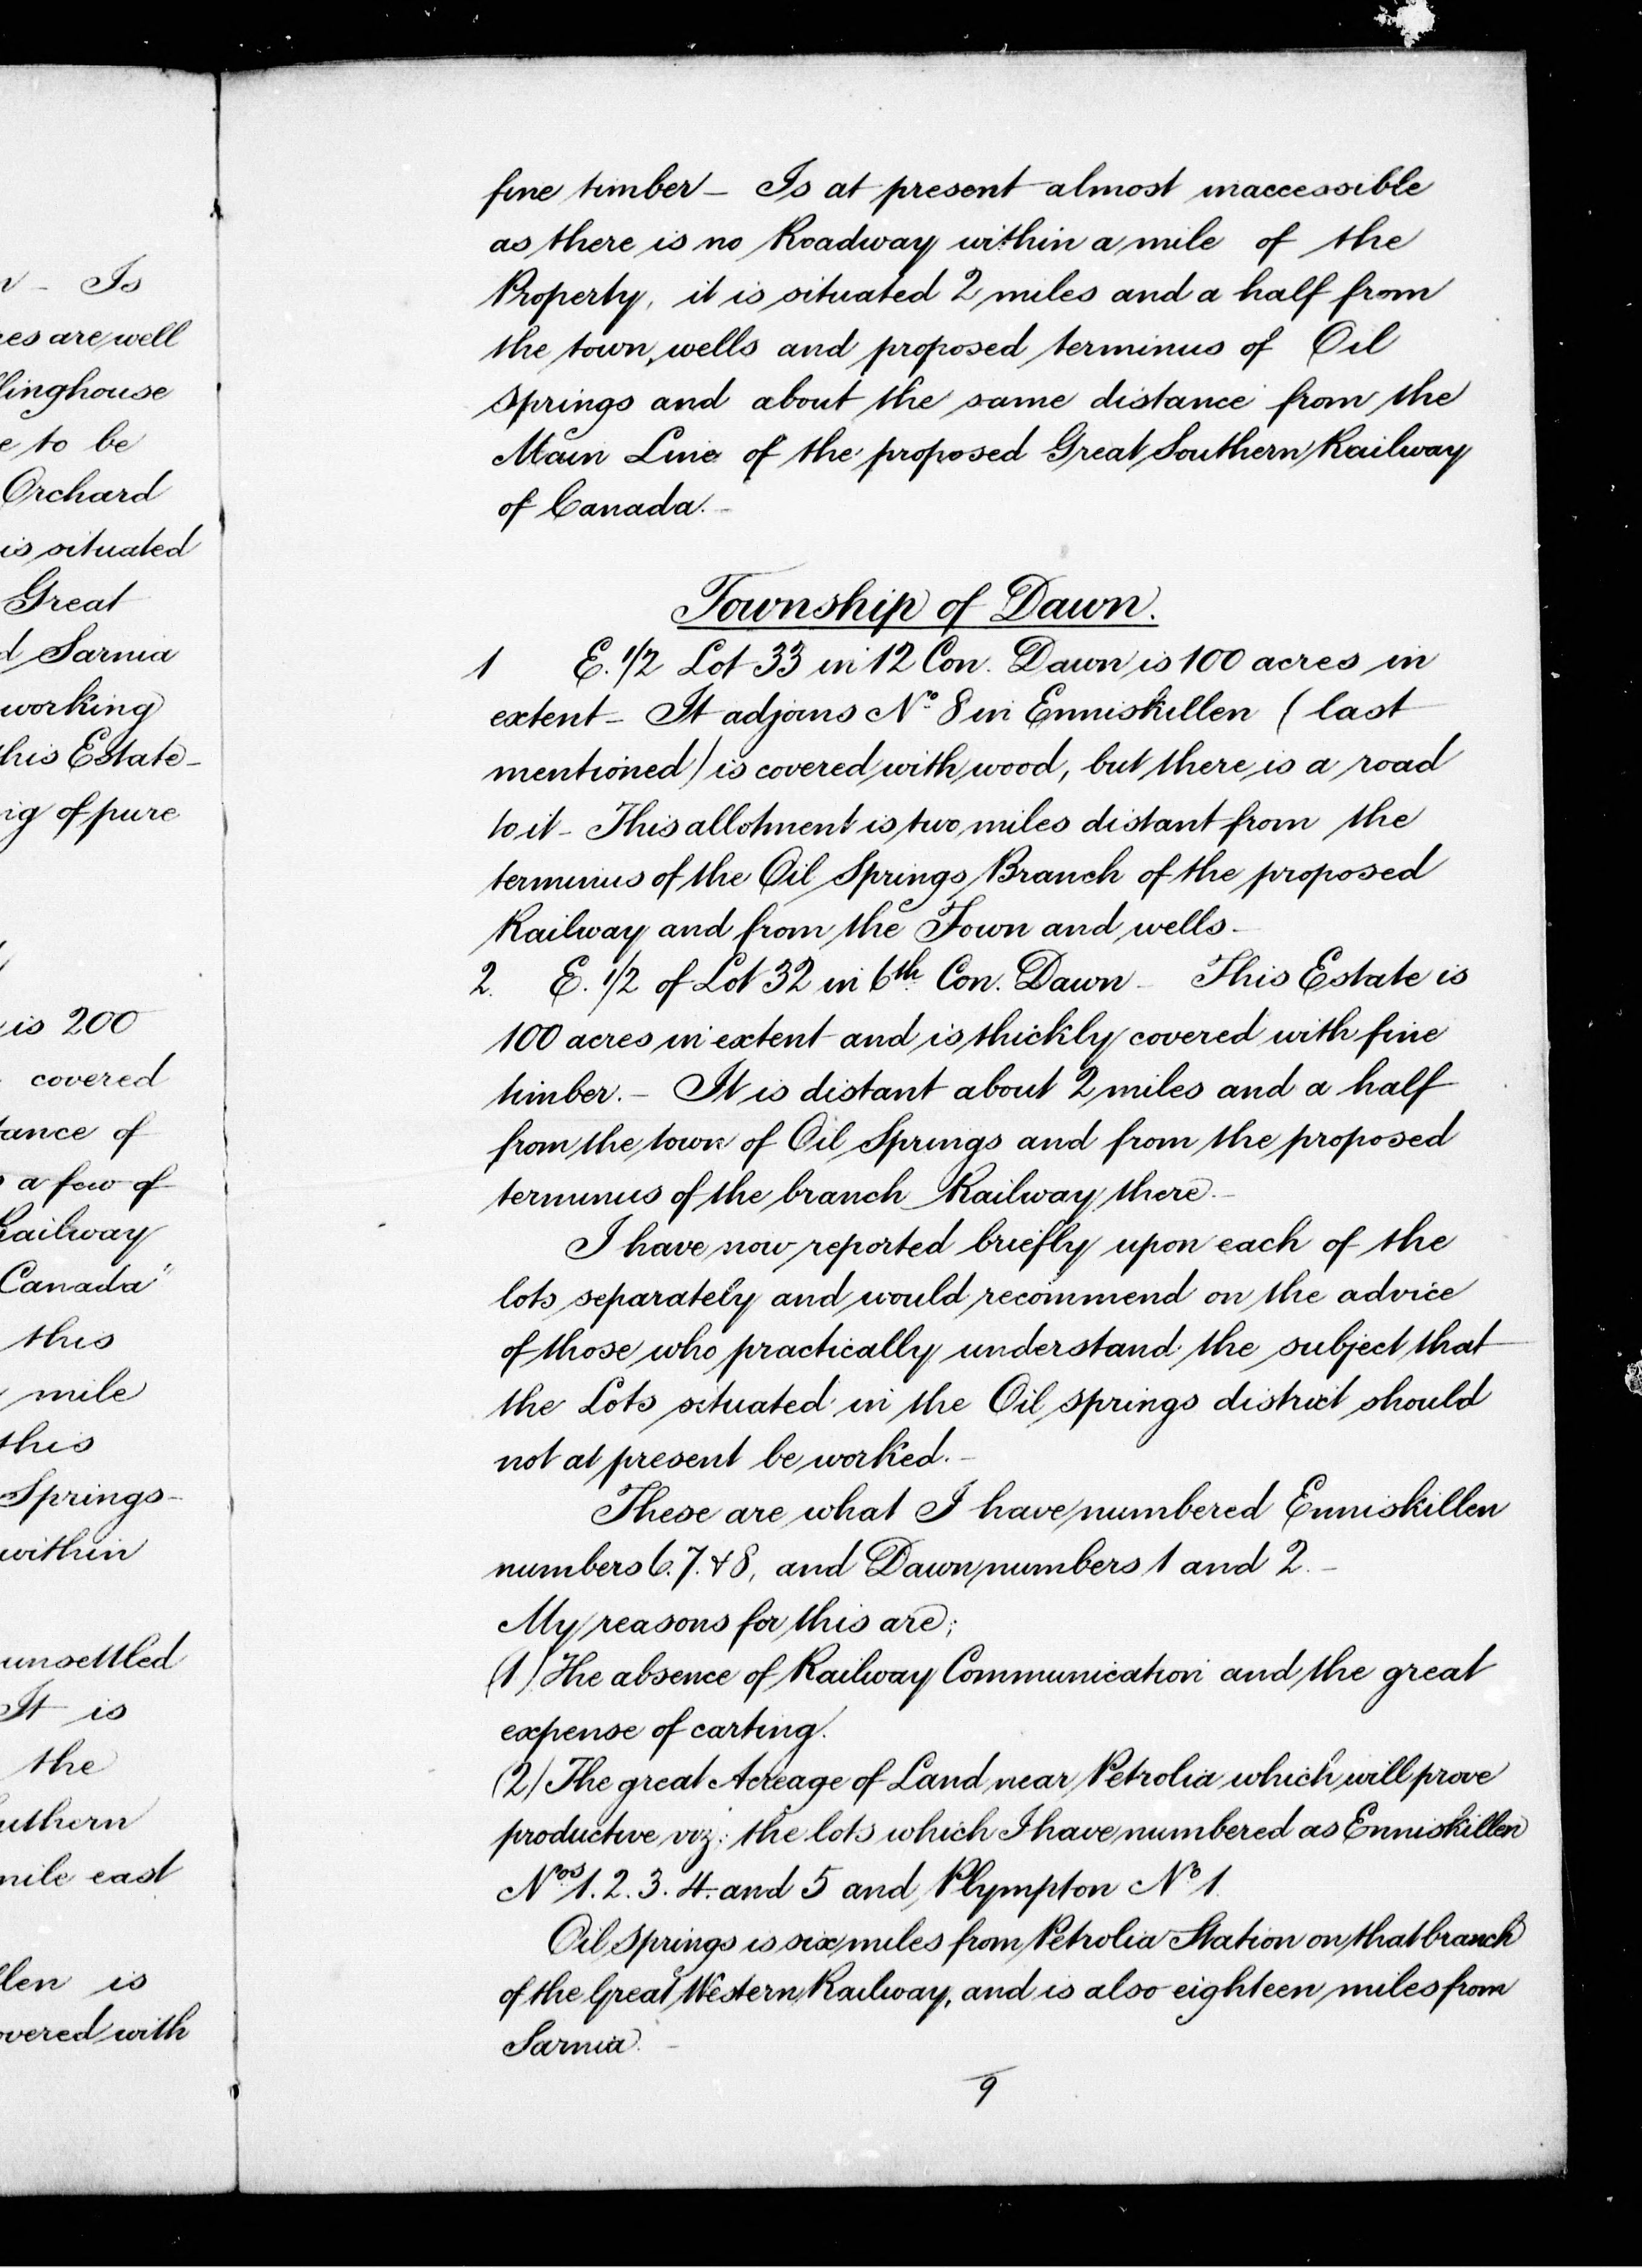 n - Is
res are well
llinghouse
e to be
Orchard
is situated
Great
d Sarnia
working
this Estate -
ig of pure
is 200
covered
tance of
a few of
Railway
Canada"
this
mile
this
Springs -
within
unsettled
It is
the
uthern
mile east
llen is
overed with
fine timber - Is at present almost inaccessible
as there is no Roadway within a mile of the
Property, it is situated 2 miles and a half from
the town, wells and proposed terminus of Oil
Springs and about the same distance from the
Main Line of the proposed Great Southern Railway
of Canada. -
Township of Dawn.
1 E. 1/2 Lot 33 in 12 Con. Dawn is 100 acres in
extent - It adjoins No. 8 in Enniskillen (last
mentioned) is covered with wood, but there is a road
to it - This allotment is two miles distant from the
terminus of the Oil Springs Branch of the proposed
Railway and from the Town and wells -
2. E. 1/2 of Lot 32 in 6th Con. Dawn - This Estate is
100 acres in extent and is thickly covered with fine
timber. - It is distant about 2 miles and a half
from the town of Oil Springs and from the proposed
terminus of the branch Railway there. -
I have now reported briefly upon each of the
lots separately and would recommend on the advice
of those who practically understand the subject that
the Lots situated in the Oil Springs district should
not at present be worked. -
These are what I have numbered Enniskillen
numbers 6. 7. & 8, and Dawn numbers 1 and 2. -
My reasons for this are;
(1) The absence of Railway Communication and the great
expense of carting.
(2) The great Acreage of Land near Petrolia which will prove
productive viz: the lots which I have numbered as Enniskillen
Nos. 1. 2. 3. 4. and 5 and Plympton No 1.
Oil Springs is six miles from Petrolia Station on that branch
of the Great Western Railway, and is also eighteen miles from
Sarnia. -
9